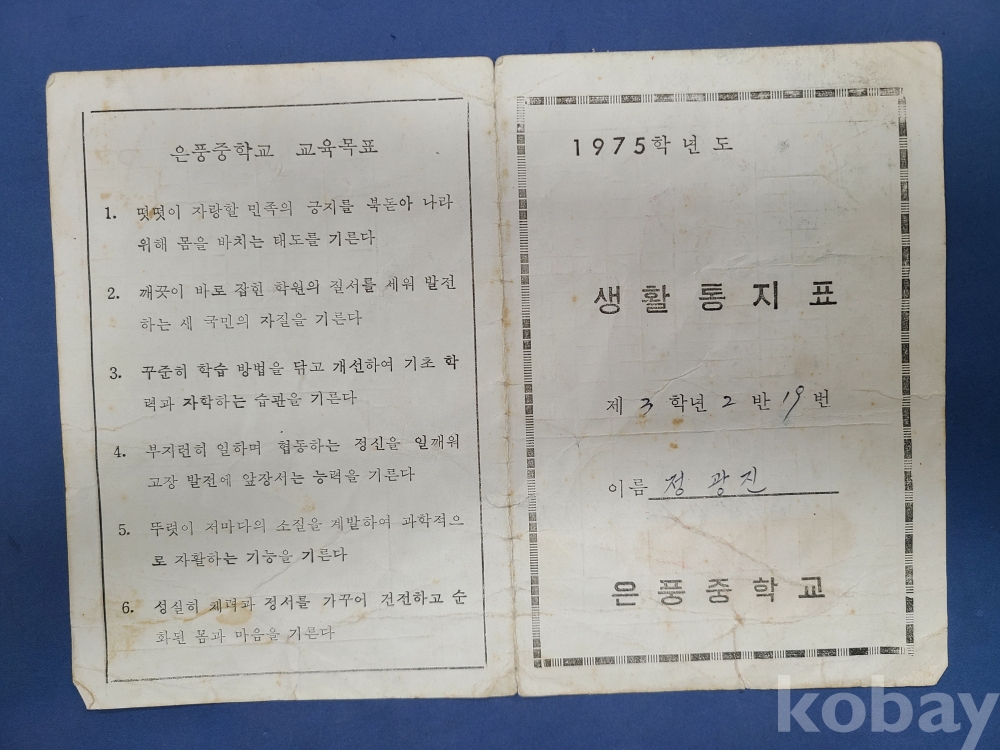 은풍중학교 교육목표
1. 떳떳이 자랑할 민족의 긍지를 북돋아 나라
위해 몸을 바치는 태도를 기른다
2. 깨끗이 바로 잡힌 학원의 질서를 세워 발전
하는 새 국민의 자질을 기른다
3. 꾸준히 학습 방법을 닦고 개선하여 기초 학
력과 자학하는 습관을 기른다
4. 부지런히 일하며 협동하는 정신을 일깨워
고장 발전에 앞장서는 능력을 기른다
5. 뚜렷이 저마다의 소질을 계발하여 과학적으
로 자활하는 기능을 기른다
6. 성실히 체력과 정서를 가꾸어 건전하고 순
화된 몸과 마음을 기른다
1975학년도
생활통지표
제 3 학년 2 반 19 번
이름 정광진
은풍중학교
kobay